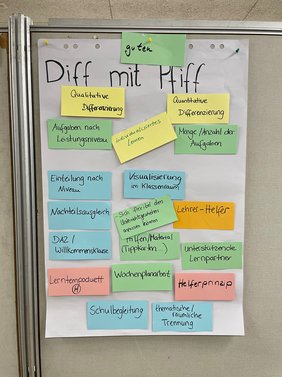 guten
Diff mit Pfiff
Qualitative
Differenzierung
Quantitative
Differenzierung
Individualisiertes
Lernen
Aufgaben nach
Leistungsniveau
Menge / Anzahl der
Aufgaben
Einteilung nach
Niveau
Visualisierung
im Klassenraum
Nachteilsausgleich
Sich flexibel den
anpassen können
Lehrer-Helfer
DAZ /
Willkommensklasse
Hilfen/Material
(Tippkarten...)
Unterstützende
Lernpartner
Lerntempoduett
Wochenplanarbeit
Helferprinzip
Schulbegleitung
thematische/
räumliche
Trennung